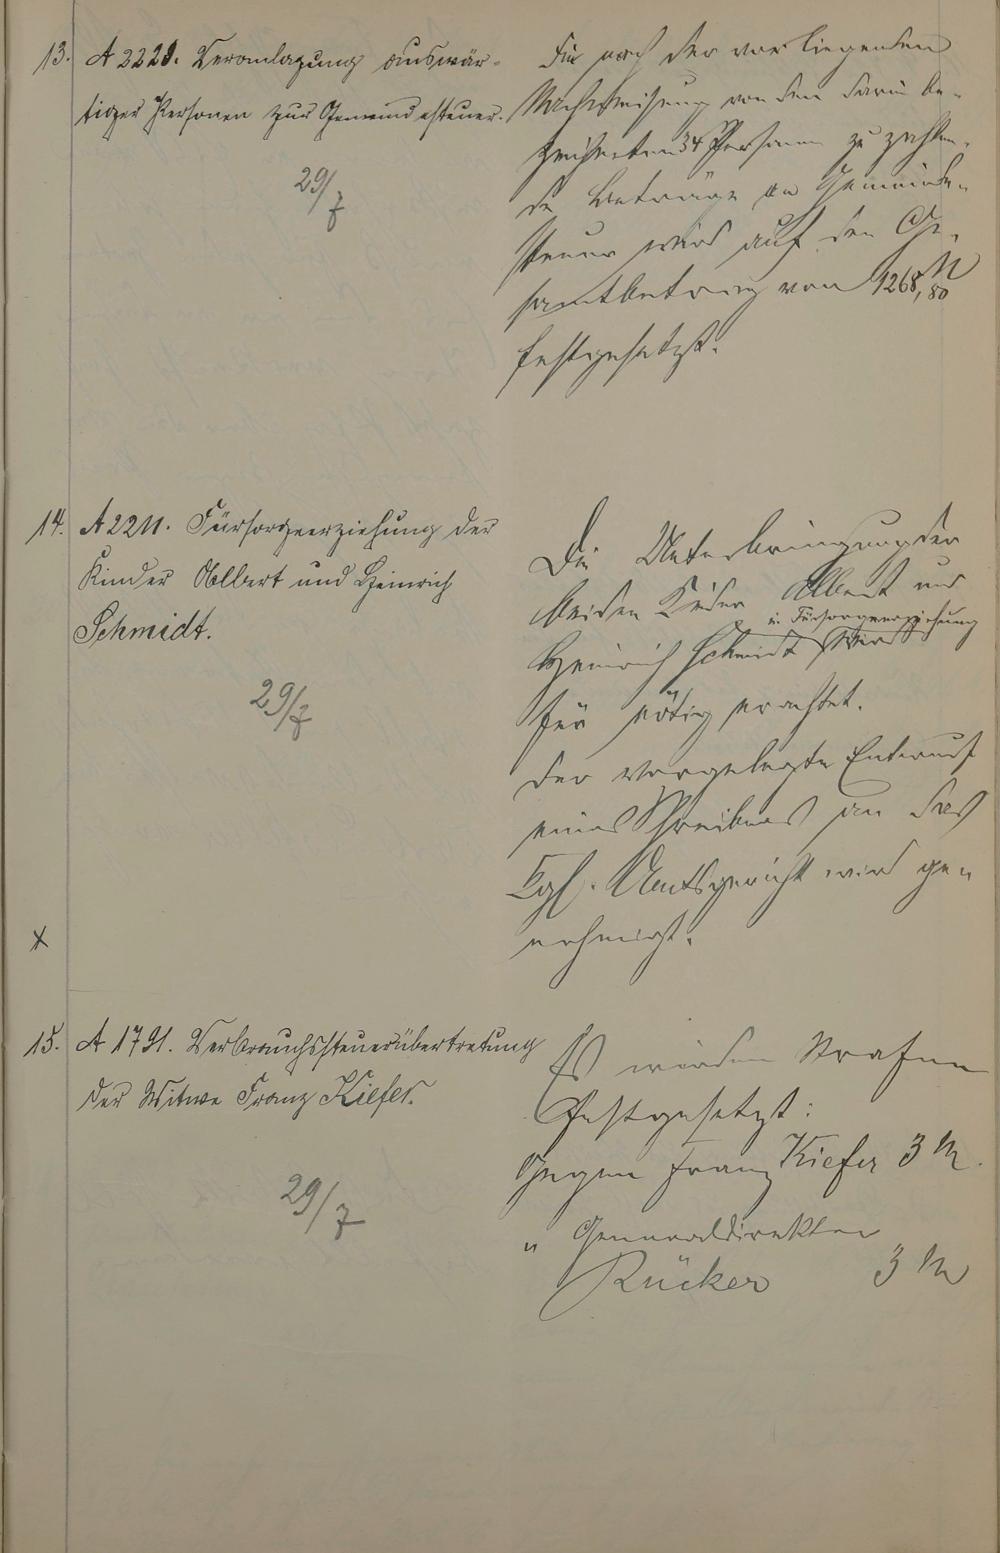 13. A 2221. Veranlagung auswär-
tiger Personen zur Gemeindesteuer.
29/7
Die nach der vorliegenden
Nachweisung von den darin be-
zeichneten 34 Personen zu zahlen-
de Beträge an Gemeinde-
steuer wird auf den Ge-
samtbetrag von 1268,80 M
festgesetzt.
14. A 2211. Fürsorgeerziehung der
Kinder Albert und Heinrich
Schmidt.
29/7
Die Unterbringung der
beiden Kinder Albert und
i. Fürsorgeerziehung
Heinrich Schmidt wird
für nötig erachtet.
Der vorgelegte Entwurf
eines Schreibens an das
Kgl. Amtsgericht wird ge-
nehmigt.
x
15. A 1791. Verbrauchssteuerübertretung
der Witwe Franz Kiefer.
29/7
Es werden Strafen
festgesetzt:
Gegen Franz Kiefer 3 M.
" Generaldirektor
Rücker 3 M